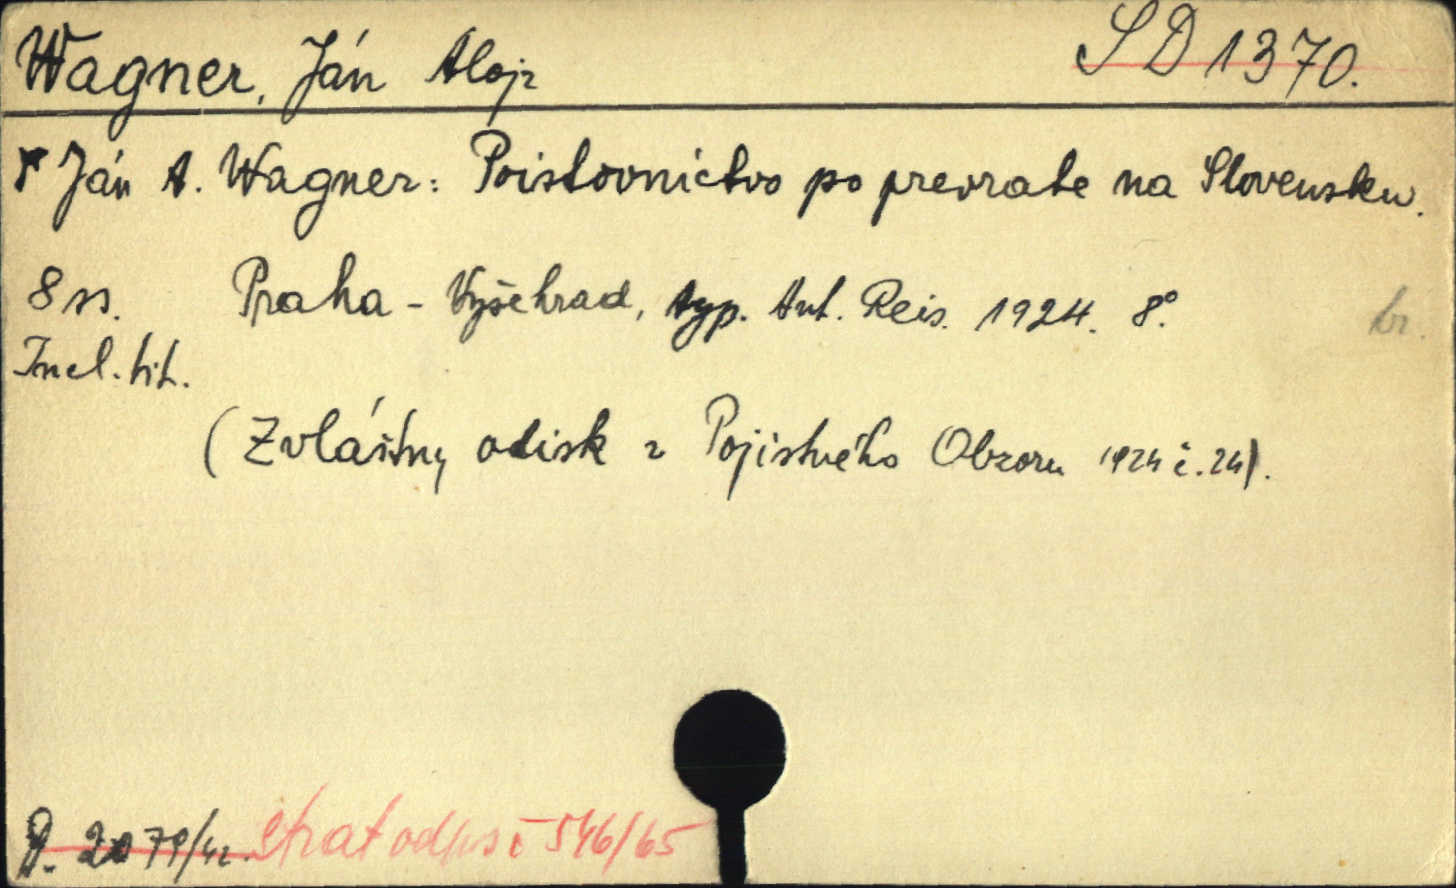 Wagner, Ján Alojz
SD 1370.
Ján A. Wagner: Poistovníctvo po prevrate na Slovensku.
8 ss. Praha - Vyšehrad, typ. Ant. Reis. 1924. 8°.
br.
Incl. tit.
(Zvláštny odtisk z Pojistného Obzoru 1924 č. 24).
2079/42. strat odps č 546/65